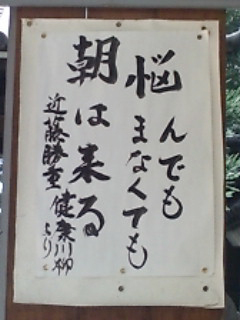 悩んでも
まなくても
朝は来る
近藤勝重 健康川柳
より